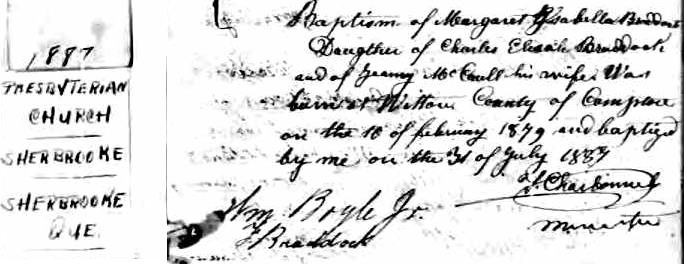 1887
PRESBYTERIAN
CHURCH
SHERBROOKE
SHERBROOKE
QUE.
Baptism of Margaret Isabella Braddock
Daugther of Charles Braddock
and of Jeanny his wife Was
born at County of Compton
on the 18 of february 1879 and baptized
by me on the 31 of July 1887
Charbonnel
Wm Boyle Jr. minister
Braddock